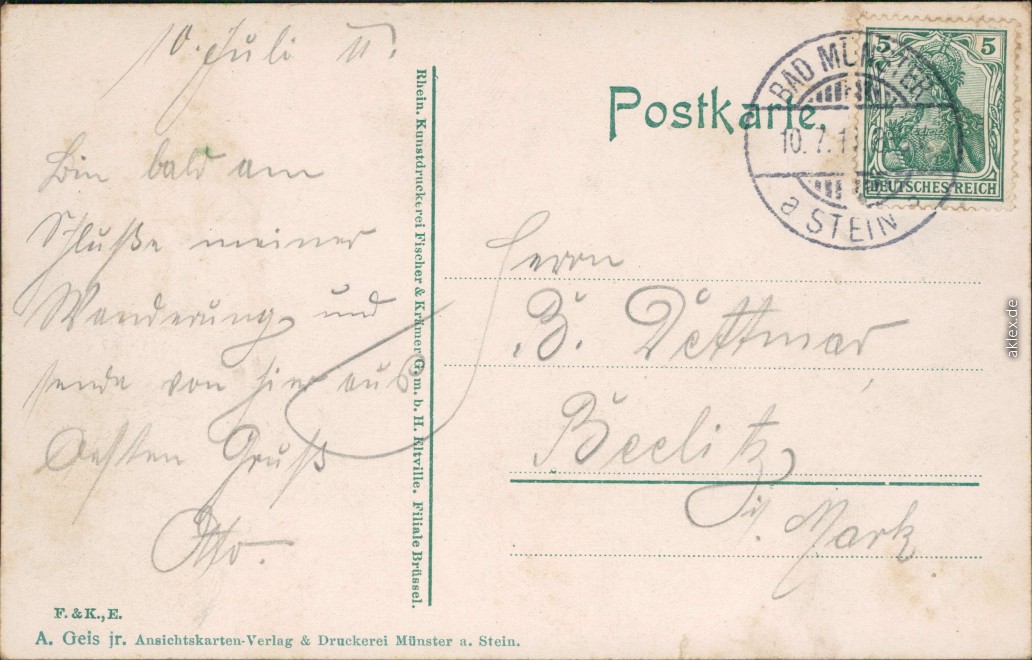 10. Juli 11.
Bin bald am
Schluße meiner
Wanderung und
sende von hier aus
Besten Gruß
Otto.
F. & K., E.
A. Geis jr. Ansichtskarten-Verlag & Druckerei Münster a. Stein.
Rhein. Kunstdruckerei Fischer & Krämer G. m. b. H. Eltville. Filiale Brüssel.
Postkarte.
BAD MÜNSTER
10. 7. 11
a STEIN
5 5
DEUTSCHES REICH
Herrn
B. Dettmar
Beelitz
i/ Mark
aklex.de